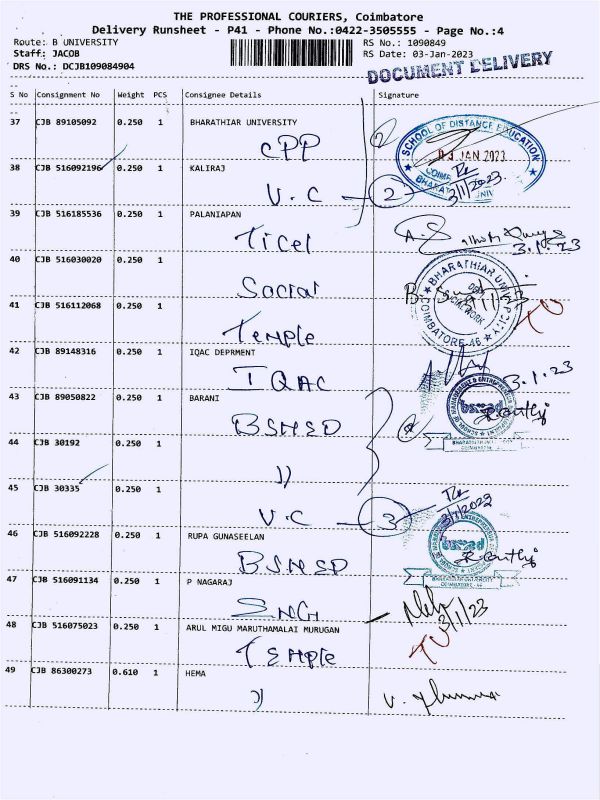 THE PROFESSIONAL COURIERS, Coimbatore
Delivery Runsheet - P41 - Phone No.:0422-3505555 - Page No.:4
Route: B UNIVERSITY
Staff: JACOB
DRS No.: DCJB109084904
RS No.: 1090849
RS Date: 03-Jan-2023
DOCUMENT DELIVERY
S No Consignment No Weight PCS Consignee Details Signature
37 CJB 89105092 0.250 1 BHARATHIAR UNIVERSITY
CPP
SCHOOL OF DISTANCE EDUCATION
03 JAN 2023
38 CJB 516092196 0.250 1 KALIRAJ
V.C 2 3/1/2023
39 CJB 516185536 0.250 1 PALANIAPAN
Ticel 3.1.23
40 CJB 516030020 0.250 1
Social
BHARATHIAR UNIVERSITY
SOCIAL WORK
COIMBATORE-46
41 CJB 516112068 0.250 1
Temple
42 CJB 89148316 0.250 1 IQAC DEPRMENT
IQAC 3.1.23
43 CJB 89050822 0.250 1 BARANI
BSMSD
bsmed
44 CJB 30192 0.250 1
))
45 CJB 30335 0.250 1
V.C 3 3/1/2023
46 CJB 516092228 0.250 1 RUPA GUNASEELAN
BSMSD
bsmed
BHARATHIAR UNIVERSITY
47 CJB 516091134 0.250 1 P NAGARAJ
SNG 3/1/23
48 CJB 516075023 0.250 1 ARUL MIGU MARUTHAMALAI MURUGAN
Temple
49 CJB 86300273 0.610 1 HEMA
))